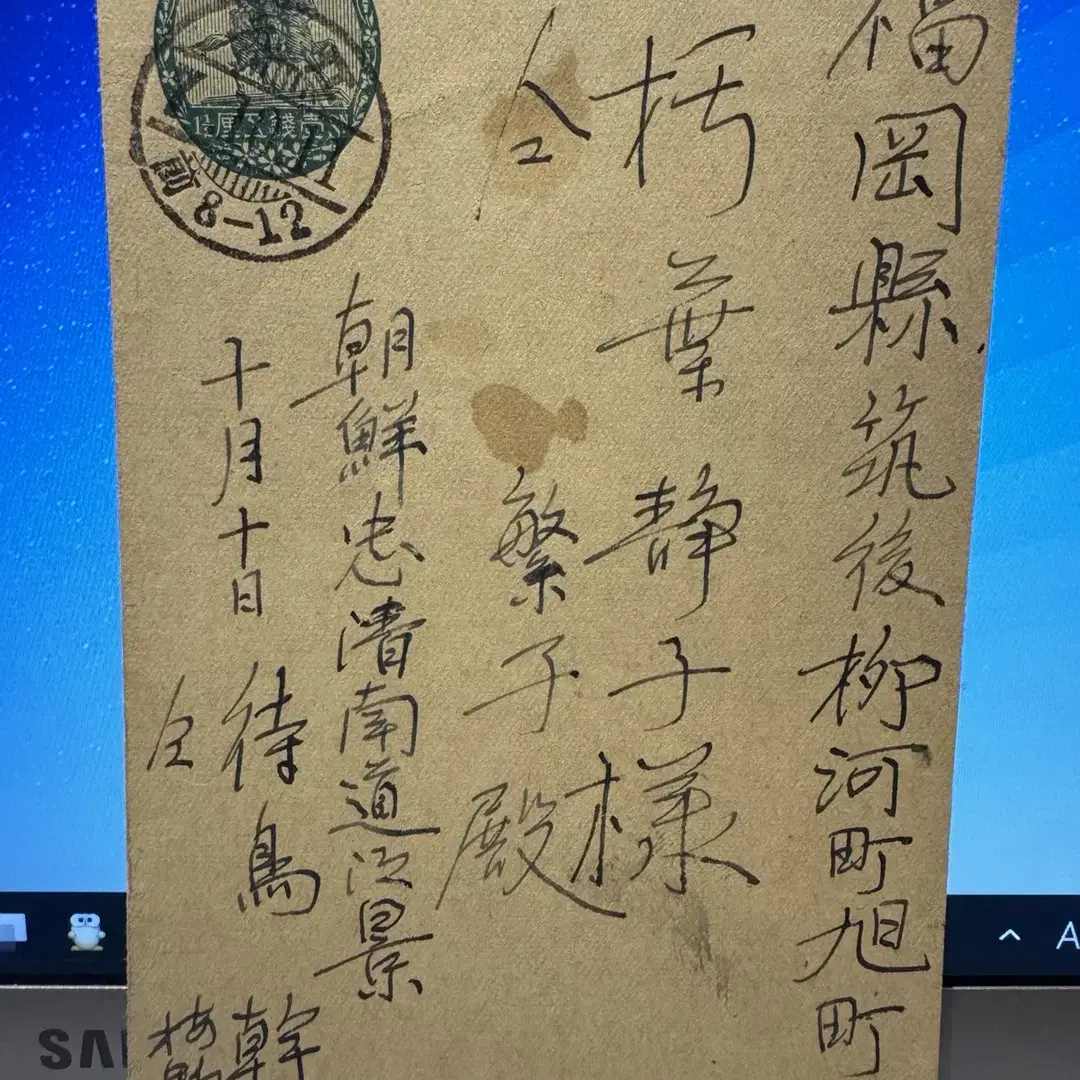 福岡縣筑後柳河町旭町
杤葉静子様
仝 繁子殿
朝鮮忠清南道江景
十月十日 待鳥 幹
仝
1½ 壹錢五厘
前8-12
SA
A